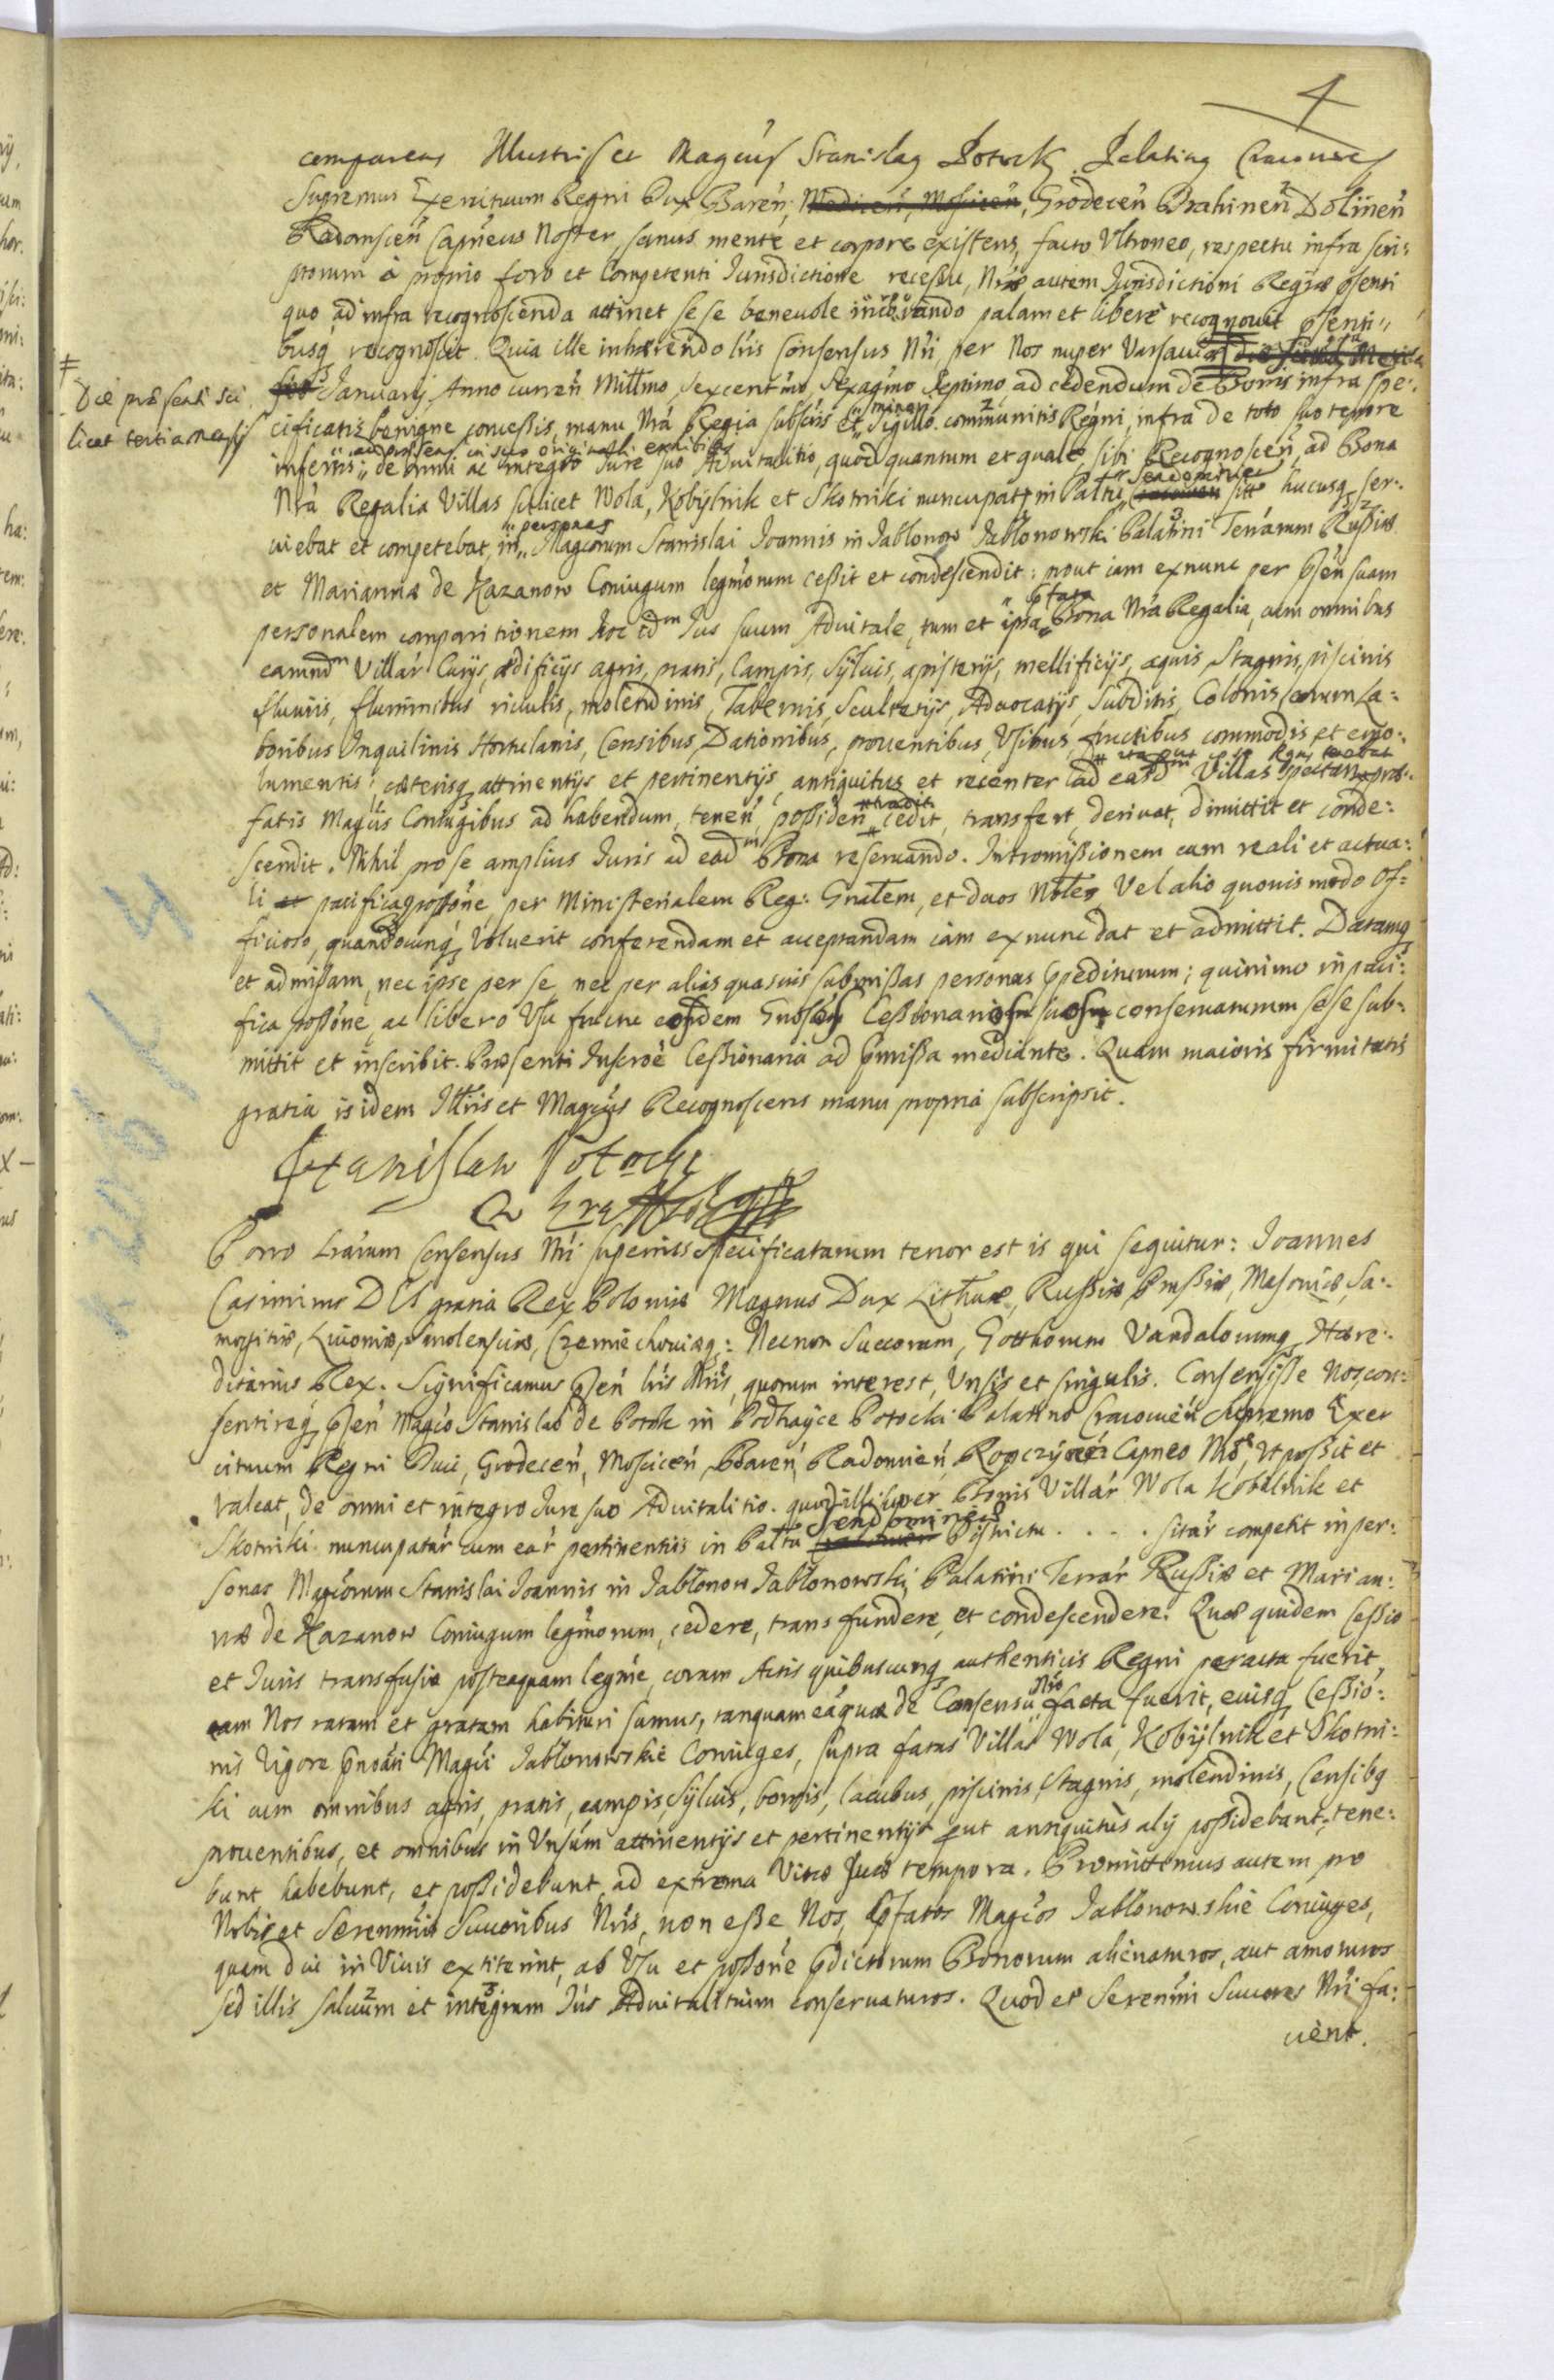 4
comparens Illustris et Magcus Stanislaq Potocki Palatinq Cracouień
Supremus Exercituum Regni Dux Bareń, Mediceń, Mosiceń, Grodeceń Brahineń Dolineń
Radomsceń Capneus Noster, sanus mente et corpore existens, facto Vltroneo, respectu infra scri:
ptorum à proprio foro et Competenti Iurisdictione recessu, Nrae autem Iurisdictioni Regiae psenti
quo ad infra recognoscenda attinet sese beneuole incorporando palam et liberè recognouit psenti"
busq recognoscit. Quia ille inhaerendo Lris Consensus Nri, per Nos nuper Varsauiae die Mensis
Die praesenti sci
licet tertia mensis
Ianuarij Anno curreń Millmo, sexcentmo, Sexagmo Septimo ad cedendum de Bonis infra spe:
cificatis benigne concessis, manu Nrá Regia subscris et Sigillo minori communitis Regni, infra de toto suo tenore
ac in praesens in suo originali exhibitis
insertis; de omni ac integro Iure suo Aduitalitio, quod quantum et quale sibi Recognosceń ad Bona
Nrá Regalia Villas scilicet Wola, Kobylnik et Skotniki nuncupatt in Palttu Sendomirień sitt hucusq ser:
uiebat et competebat, in personas Magcorum Stanislai Ioannis in Iablonow Iabłonowski Palatini Terrarum Russiae
et Mariannae de Kazanow Coniugum legmorum cessit et condescendit: prout iam exnunc per psen suam
personalem comparitionem hoc idm Ius suum Aduitale, tum et ipsa pfata Bona Nrá Regalia, cum omnibus
earundm Villar Curijs, aedificijs agris, pratis, Campis, Syluis, apisterijs, mellificijs, aquis, Stagnis, piscinis
fluuiis, fluminibus riuulis, molendinis, Tabernis, Scultetijs, Aduocatijs, Subditis, Colonis, eorum la:
boribus Inquilinis Hortulanis, Censibus, Dationibus, prouentibus, Vsibus, fructibus commodis et emo:
lumentis; caeterisq attinentijs et pertinentijs, antiquitus et recenter ad easdm Villas spectań prae:
fatis Magcis Coniugibus ad habendum, teneń, possideń tradit cedit, transfert, deriuat, dimittit et conde:
scendit. Nihil pro se amplius Iuris ad eadm Bona reseruando. Intromissionem cum reali et actua:
li et pacifica possone per Ministerialem Reg: Gnalem, et duos Nobles, Vel alio quouis modo Of:
ficioso, quandocunq Voluerit conferendam et acceptandam iam exnunc dat et admittit. Datamq
et admissam, nec ipse per se, nec per alias quasuis submissas personas impediturum; quinimo in paci:
fica possone, ac libero Vsu fructu eosdem Gnosos Cessionarios suos conseruaturum sese sub:
mittit et inscribit. Praesenti Inscroe Cessionaria ad pmissa mediante. Quam maioris firmitatis
gratia is idem Illris et Magcus Recognoscens manu propria subscripsit.
Stanislaw Potocki
Porro Lrarum Consensus Nri superius specificatarum tenor est is qui sequitur: Ioannes
Casimirus DEI gratia Rex Poloniae Magnus Dux Lithuae, Russiae Prussiae, Masouiae, Sa:
mogitiae, Liuoniae, Smolensciae, Czerniechouiaeq: Necnon Suecorum, Gotthorum Vandalorumq Haere:
ditarius Rex. Significamus pseń Lris Nris, quorum interest, Vnsis et singulis. Consensisse Nos, con:
sentireq pseń Magco Stanislao de Potok in Podhayce Potocki Palatino Cracouień Supremo Exer
cituum Regni Duci, Grodeceń, Mosiceń, Bareń, Radomień, Ropczyceń Capneo Nro, Vt possit et
valeat, de omni et integro Iure suo Aduitalitio. quod illi super Bonis Villar Wola Kobilnik et
Skotniki nuncupatar cum ear pertinentiis in Palttu Sendomirień Districtu . . . . sitar competit in per:
sonas Magcorum Stanislai Ioannis in Iabłonow Iabłonowski Palatini Terrar Russiae et Marian:
nae de Kazanow Coniugum legmorum, cedere, transfundere, et condescendere. Quae quidem Cessio
et Iuris transfusio posteaquam legme, coram Actis quibuscunq authenticis Regni peracta fuerit,
eam Nos ratam et gratam habituri sumus, tanquam ea quae de Consensu Nro facta fuerit, euisq Cessio:
nis Vigore pnoati Magci Iabłonowskie Coniuges, supra fatas Villas Wola, Kobylnik et Skotni:
ki cum omnibus agris, pratis, campis, Syluis, borris, lacubus, piscinis, Stagnis, molendinis, Censibq
prouentibus, et omnibus in Vnsum attinentijs et pertinentijs put antiquitùs alij possidebant, tene:
bunt habebunt, et possidebunt, ad extrema Vitae suae tempora. Promittimus autem pro
Nobis et Serenmis Succoribus Nris, non esse Nos, pfatos Magcos Iabłonowskie Coniuges,
quam diu in Viuis extiterint, ab Vsu et possone pdictorum Bonorum alienaturos, aut amoturos
sed illis saluum et integrum Ius Aduitalitium conseruaturos. Quod et Serenmi Succores Nri fa:
cient.